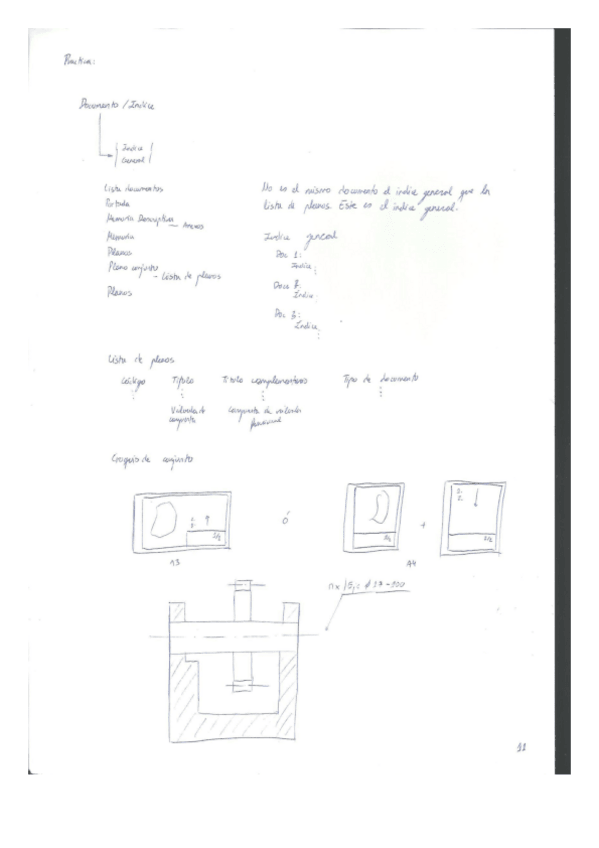 Practica:
Documento / Indice
Indice
General
Lista documentos
Portada
Memoria Descriptiva — Anexos
Memoria
Planos
Plano conjunto - Lista de planos
Planos
No es el mismo documento el indice general que la
lista de planos. Este es el indice general.
Indice general
Doc 1:
Indice
Doc 2:
Indice
Doc 3:
Indice
Lista de planos
Código Titulo Titulo complementario Tipo de documento
Valvula de Conjunto de valvula
conjunto
Croquis de conjunto
1.
2.
1/2
ó
1/2
+
1.
2.
2/2
A3
A4
11